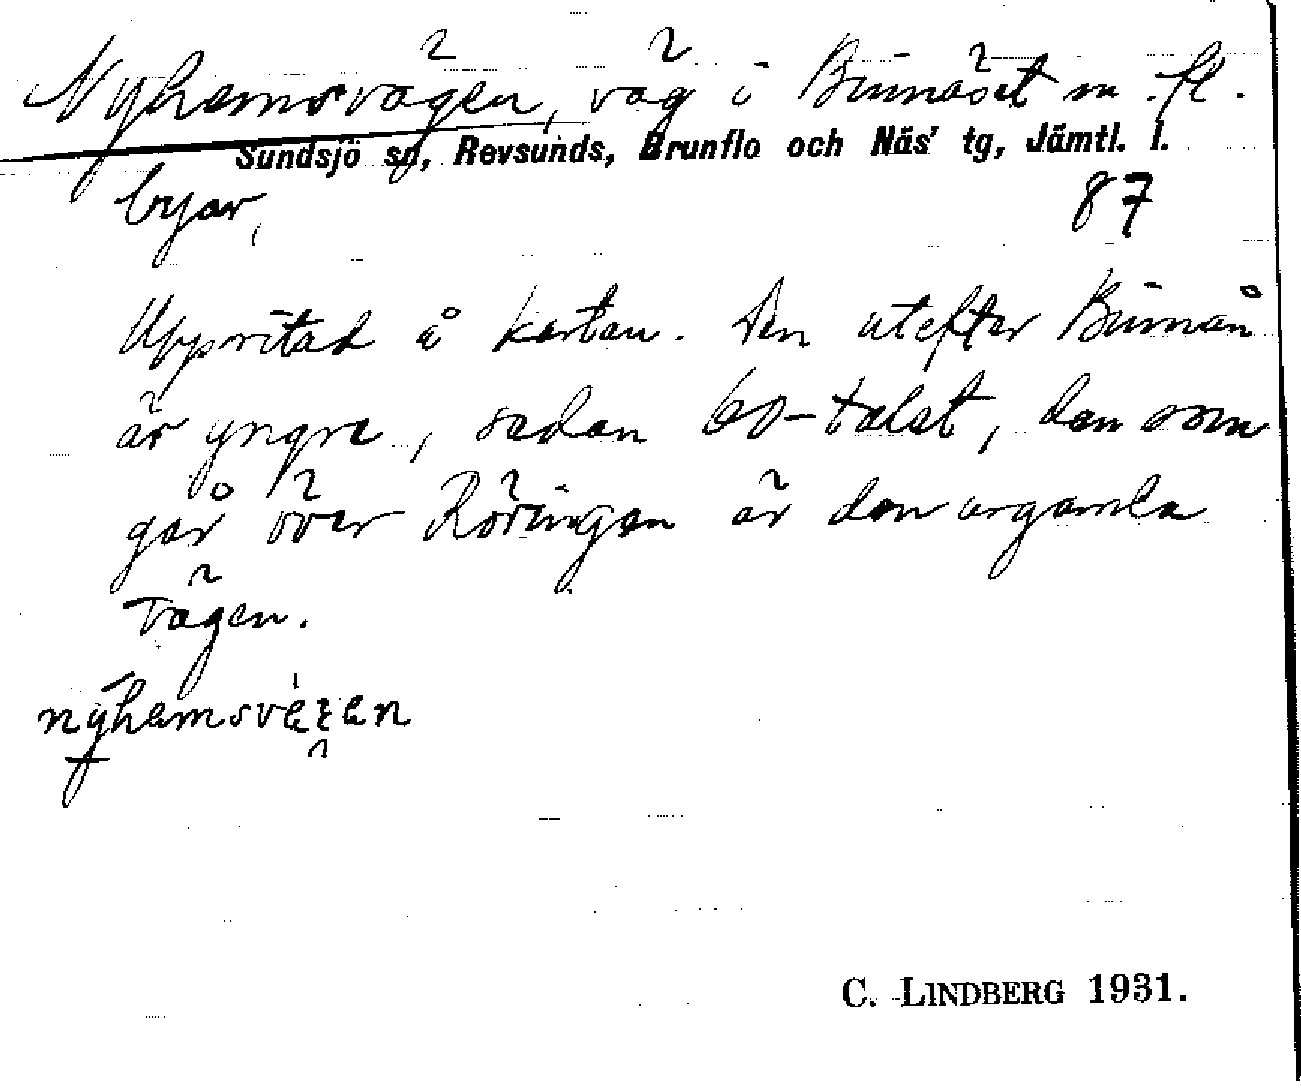 Nyhemsvägen, väg i Bimnäset m. fl.
Sundsjö sn, Revsunds, Brunflo och Näs' tg, Jämtl. l.
byar,
87
Uppritad å kartan. Den utefter Bimån
är yngre, sedan 60-talet, den som
går över Röringen är den urgamla
vägen.
C. LINDBERG 1931.